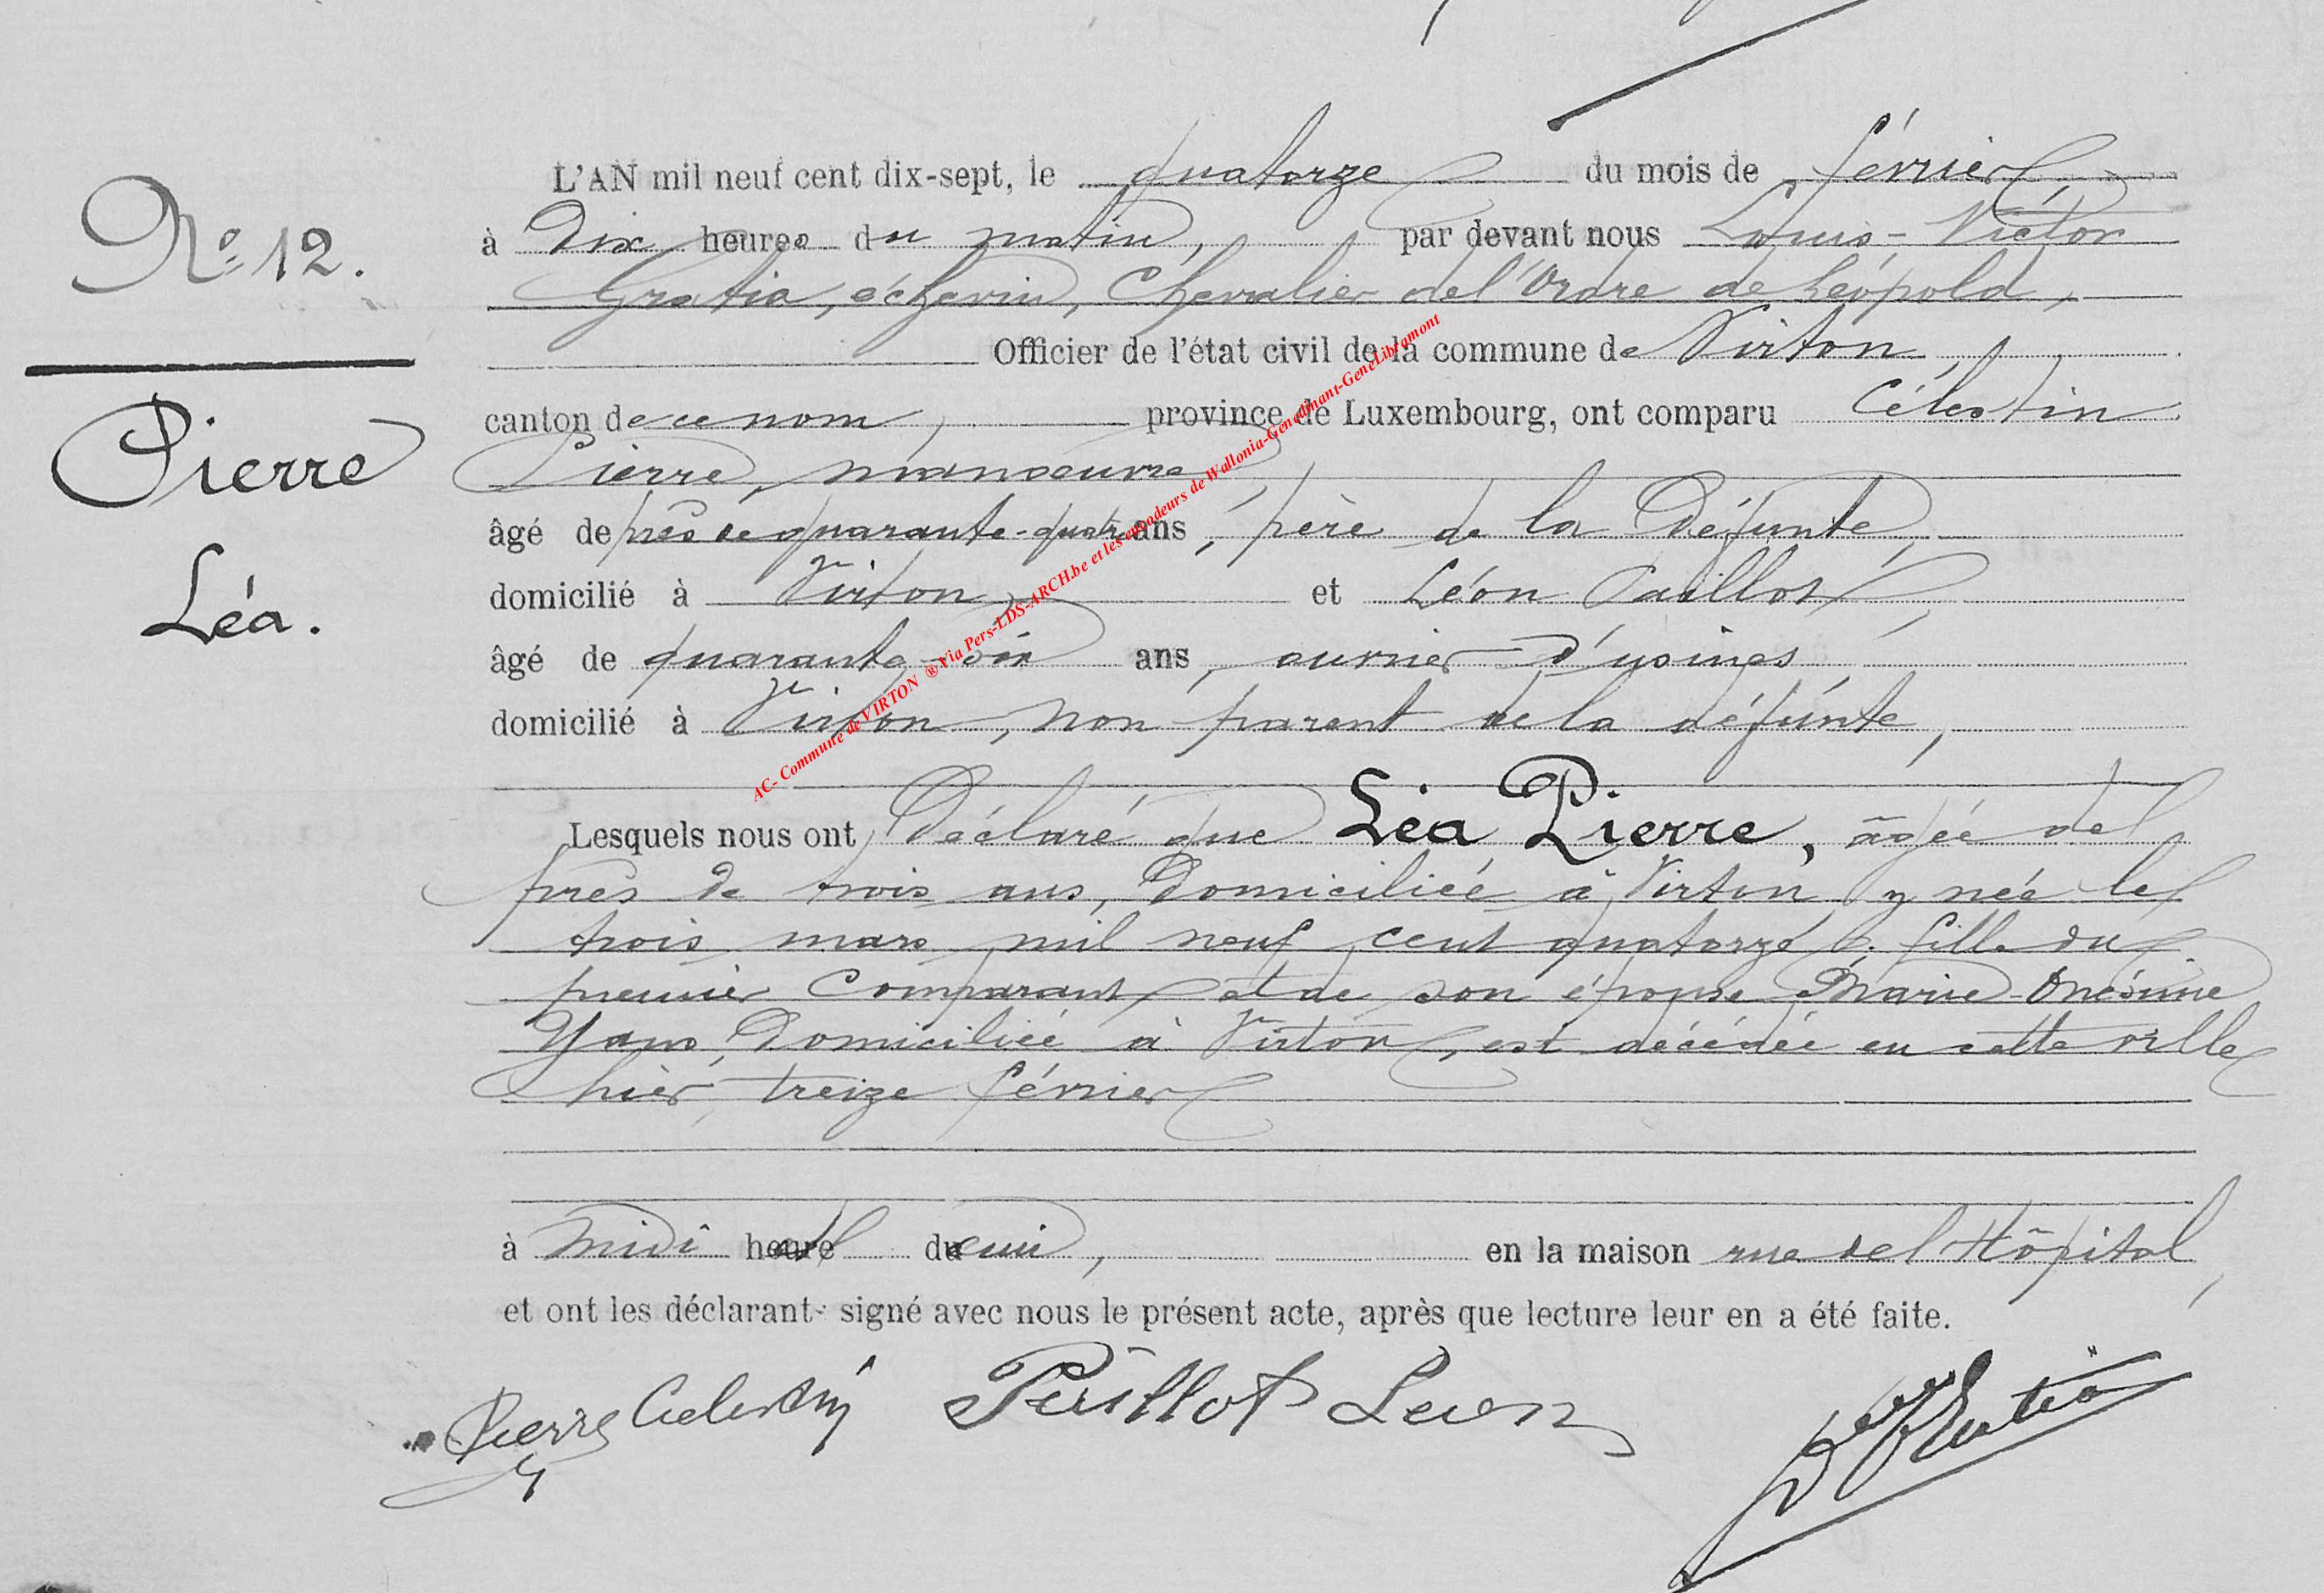 N.º 12.
Pierre
Léa.
L'AN mil neuf cent dix-sept, le quatorze du mois de février,
à dix heures du matin, par devant nous Louis-Victor
Gratia, échevin, Chevalier de l'Ordre de Léopold,
Officier de l'état civil de la commune de Virton,
canton de ce nom, province de Luxembourg, ont comparu Célestin
Pierre, manoeuvre,
âgé de près de quarante-quatre ans, père de la défunte,
domicilié à Virton, et Léon
âgé de quarante-six ans, ouvrier d'usines
domicilié à Virton, non parent de la défunte,
Lesquels nous ont déclaré que Léa Pierre, âgée de
près de trois ans, domiciliée à Virton, y née le
trois mars mil neuf cent quatorze, fille du
premier comparant et de son épouse Marie-Onésime
domiciliée à Virton, est décédée en cette ville
hier, treize février
à midi heure du en la maison rue de l'Hôpital,
et ont les déclarants signé avec nous le présent acte, après que lecture leur en a été faite.
Pierre Celestin Leon
AC- Commune de VIRTON ® Via Pers-LDS-ARCH.be et les encodeurs de Wallonia-Genedinant-GeneLibramont